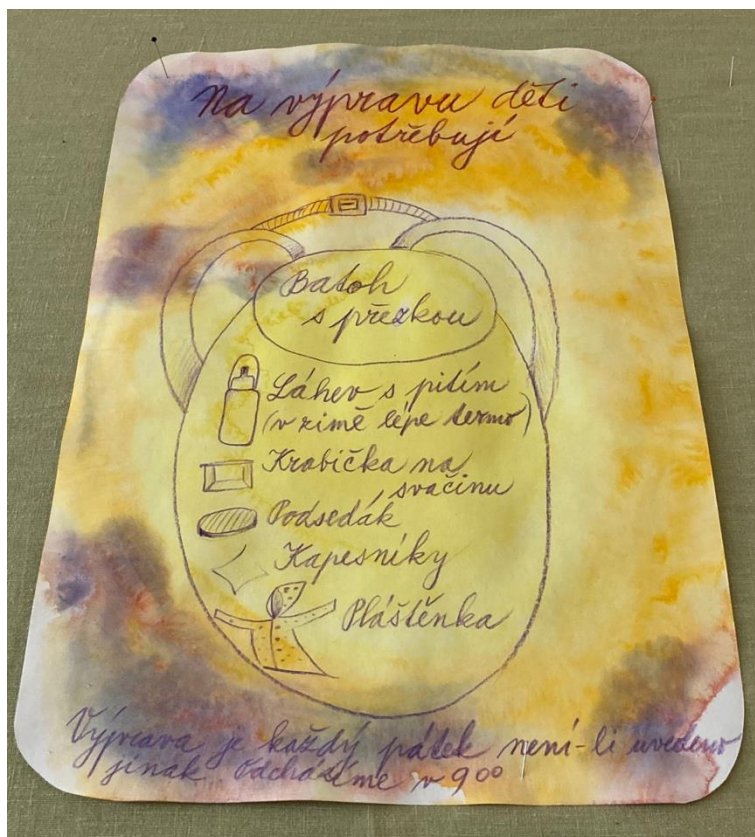 Na výpravu děti
potřebují
Batoh
s přezkou
Láhev s pitím
(v zimě lépe termo)
Krabička na
svačinu
Podsedák
Kapesníky
Pláštěnka
Výprava je každý pátek není-li uvedeno
jinak Odcházíme v 9⁰⁰